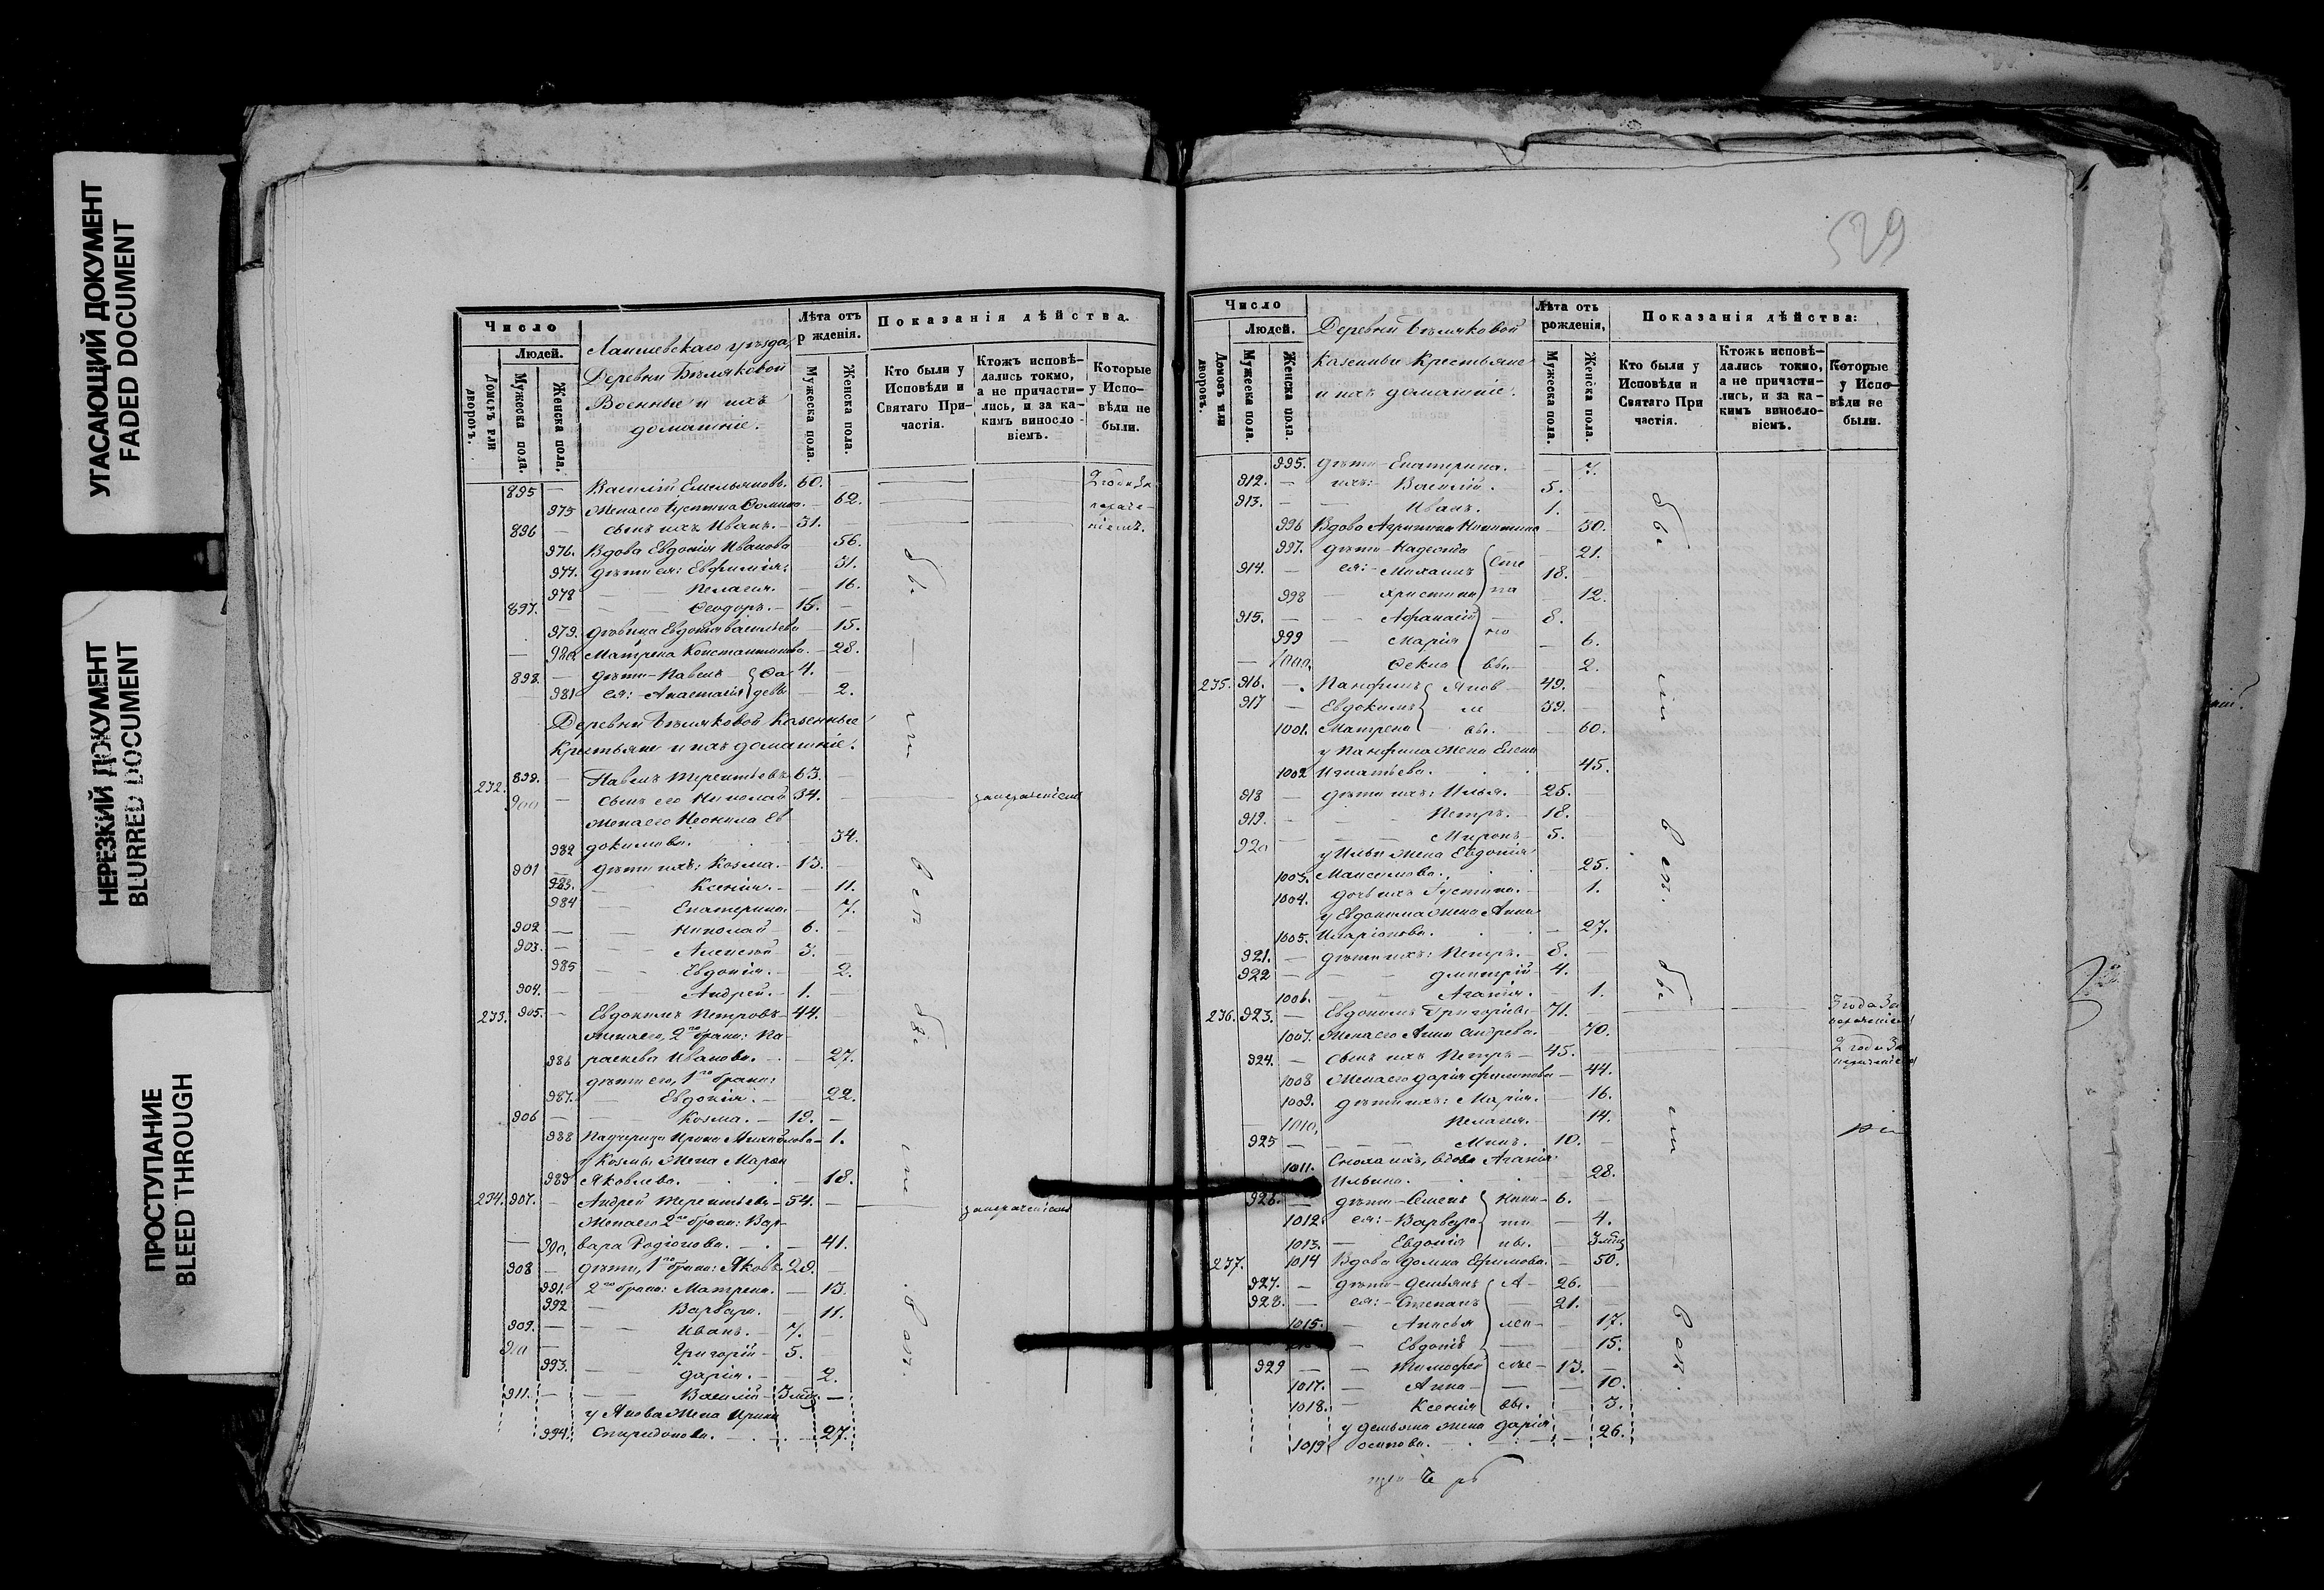 УГАСАЮЩИЙ ДОКУМЕНТ
FADED DOCUMENT
НЕРЕЗКИЙ ДОКУМЕНТ
BLURRED DOCUMENT
ПРОСТУПАНИЕ
BLEED THROUGH
Число
Людей.
Домовъ или дворовъ.
Мужеска пола.
Женска пола.
Лаишевскаго уѣзда
Деревни Бѣляковой
Военные и ихъ
домашніе.
Лѣта отъ рожденія.
Мужеска пола.
Женска пола.
Показанія дѣйства.
Кто были у Исповѣди и Святаго Причастія.
Ктожъ исповѣдались токмо, а не причастились, и за какимъ винословіемъ.
Которые у Исповѣди не были.
895 — Василій Емельяновъ. 60. —
975 Жена его Іустина Ѳомина. — 62.
896 — сынъ ихъ Иванъ. — 31. —
976. Вдова Евдокія Иванова — 56.
977. дѣти ея: Евфимія. — 31.
978 — — Пелагія. — 16.
897. — — Ѳеодоръ. — 15. —
979. дѣвица Евдокія Васильева — 15.
980 Матрена Константинова. — 28.
898. — дѣти — Павелъ 4. —
981 ея: — Анастасія — 2.
Деревни Бѣляковой Казенные
Крестьяне и ихъ домашніе.
232. 899. — Павелъ Терентьевъ 63. —
900 — сынъ его Николай 34. —
Жена его Неонила Ев-
982 докимова. — 34.
901 — дѣти ихъ: Козма. — 13. —
983. — Ксенія. — 11.
984 — Екатерина. — 7.
902 — — Николай — 6. —
903. — — Алексѣй 3. —
985 — — Евдокія. — 2.
904. — — Андрей. — 1. —
233. 905. — Евдокимъ Петровъ — 44. —
Жена его, 2го брака: Па-
986 раскева Иванова. — 27.
дѣти его, 1го брака:
987. — Евдокія. — 22.
906 — — Козма. — 19. —
988 Падчерица Ирина Михайлова — 1.
у Козмы жена Марѳа
989 Яковлева. — 18.
234. 907. — Андрей Терентьевъ — 54. —
Жена его 2го брака: Вар-
990. вара Родіонова. — 41.
908 — дѣти, 1го брака: Яковъ 29. —
991. 2го брака: Матрена. — 13.
992 — Варвара. — 11.
909. — — Иванъ. — 7. —
910 — Григорій — 5. —
993. — Дарія. — 2.
911. — — Василій — 3 мѣс. —
у Якова жена Ирина
994. Спиридонова. — 27.
529
Число
Людей.
Домовъ или дворовъ.
Мужеска пола.
Женска пола.
Деревни Бѣляковой
Казенные Крестьяне
и ихъ домашніе.
Лѣта отъ рожденія,
Мужеска пола.
Женска пола.
Показанія дѣйства:
Кто были у Исповѣди и Святаго Причастія.
Ктожъ исповѣдались токмо, а не причастились, и за какимъ винословіемъ.
Которые у Исповѣди не были.
995. дѣти — Екатерина. — 7.
912. — ихъ: Василій. 5. —
913. — Иванъ. 1. —
996 Вдова Агрипина Никитина — 50.
997. дѣти — Надежда — 21.
914. — ея: — Михаилъ 18. —
998 — Христина — 12.
915. — — Афанасій 8. —
999 — Марія — 6.
1000. Ѳекла — 2.
235. 916. — Панфилъ 49. —
917 Евдокимъ 39. —
1001. Матрена — 60.
у Панфила жена Елена
1002 Игнатьева. — 45.
918 — дѣти ихъ: Илья. — 25. —
919. — — Петръ. — 18. —
920 — Миронъ — 5. —
у Ильи жена Евдокія
1003. Максимова. — 25.
1004. дочь ихъ Іустина. — 1.
у Евдокима жена Анна
1005. Иларіонова. — 27.
921. — дѣти ихъ: Петръ. — 8. —
922 — — Димитрій — 4. —
1006. — Агафія. — 1.
236. 923. — Евдокимъ Григорьевъ 71. —
1007. Жена его Анна Андреева. — 70.
924. — сынъ ихъ Петръ — 45. —
1008 Жена его Дарія Филипова — 44.
1009. дѣти ихъ: Марія. — 16.
1010. Пелагія. — 14.
925 — — — 10. —
1011. Сноха ихъ, вдова Агафія
Ильина. — 28.
926. — дѣти — Семенъ 6. —
1012. ея: — Варвара — 4.
1013. — Евдокія — 3 мѣс
237. 1014 Вдова Домна Ефимова. — 50.
927. — дѣти — Демьянъ 26. —
928. — ея: — Степанъ — 21. —
1015. — Анисья — 17.
Евдокія — 15.
929 — — Тимофей 13. —
1017. — Анна — 10.
1018. — Ксенія — 3.
у Демьяна жена Дарія
1019 Осипова. — 26.